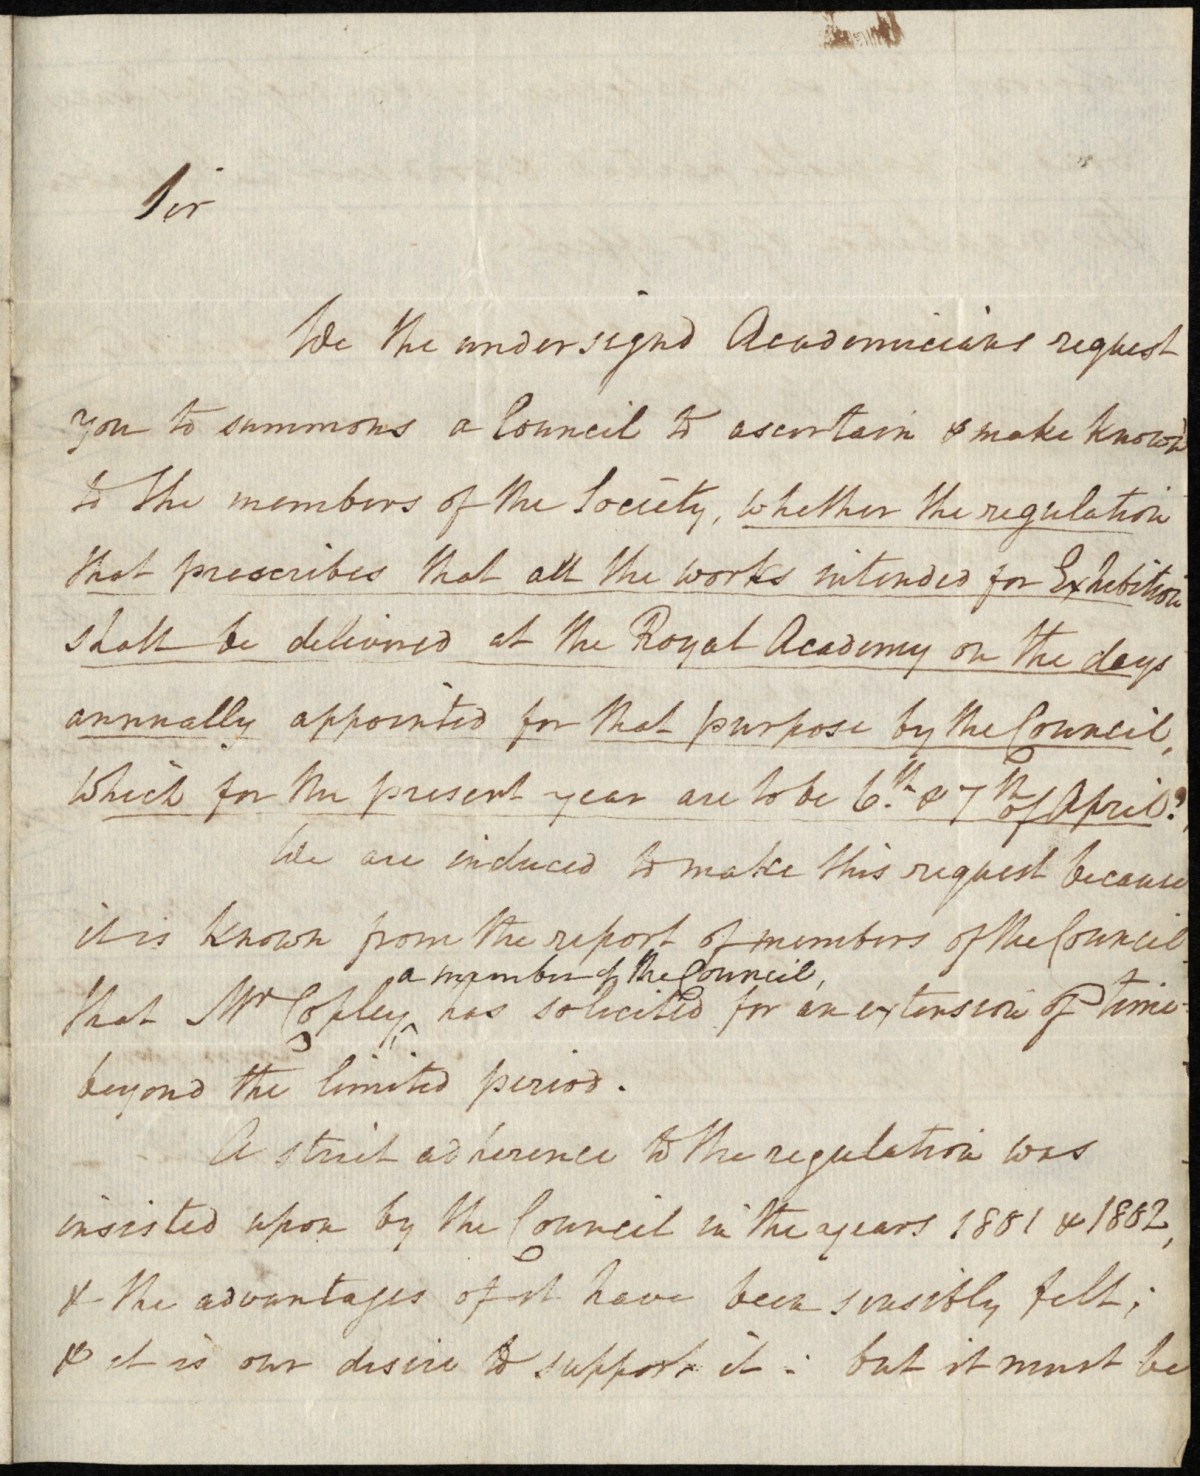 Sir
We the undersignd Academicians request
you to summons a Council to ascertain & make known
to the members of the Society, whether the regulation
that prescribes that all the works intended for Exhibition
shall be delivered at the Royal Academy on the days
annually appointed for that purpose by the Council,
which for the present year are to be 6th. & 7th of April?
We are induced to make this request because
it is known from the report of members of the Council
a member of the Council,
that Mr Copley ^ has solicited for an extension of time
beyond the limited period.
A strict adherence to the regulation was
insisted upon by the Council in the years 1801 & 1802,
& the advantages of it have been sensibly felt;
& it is our desire to support it: but it must be